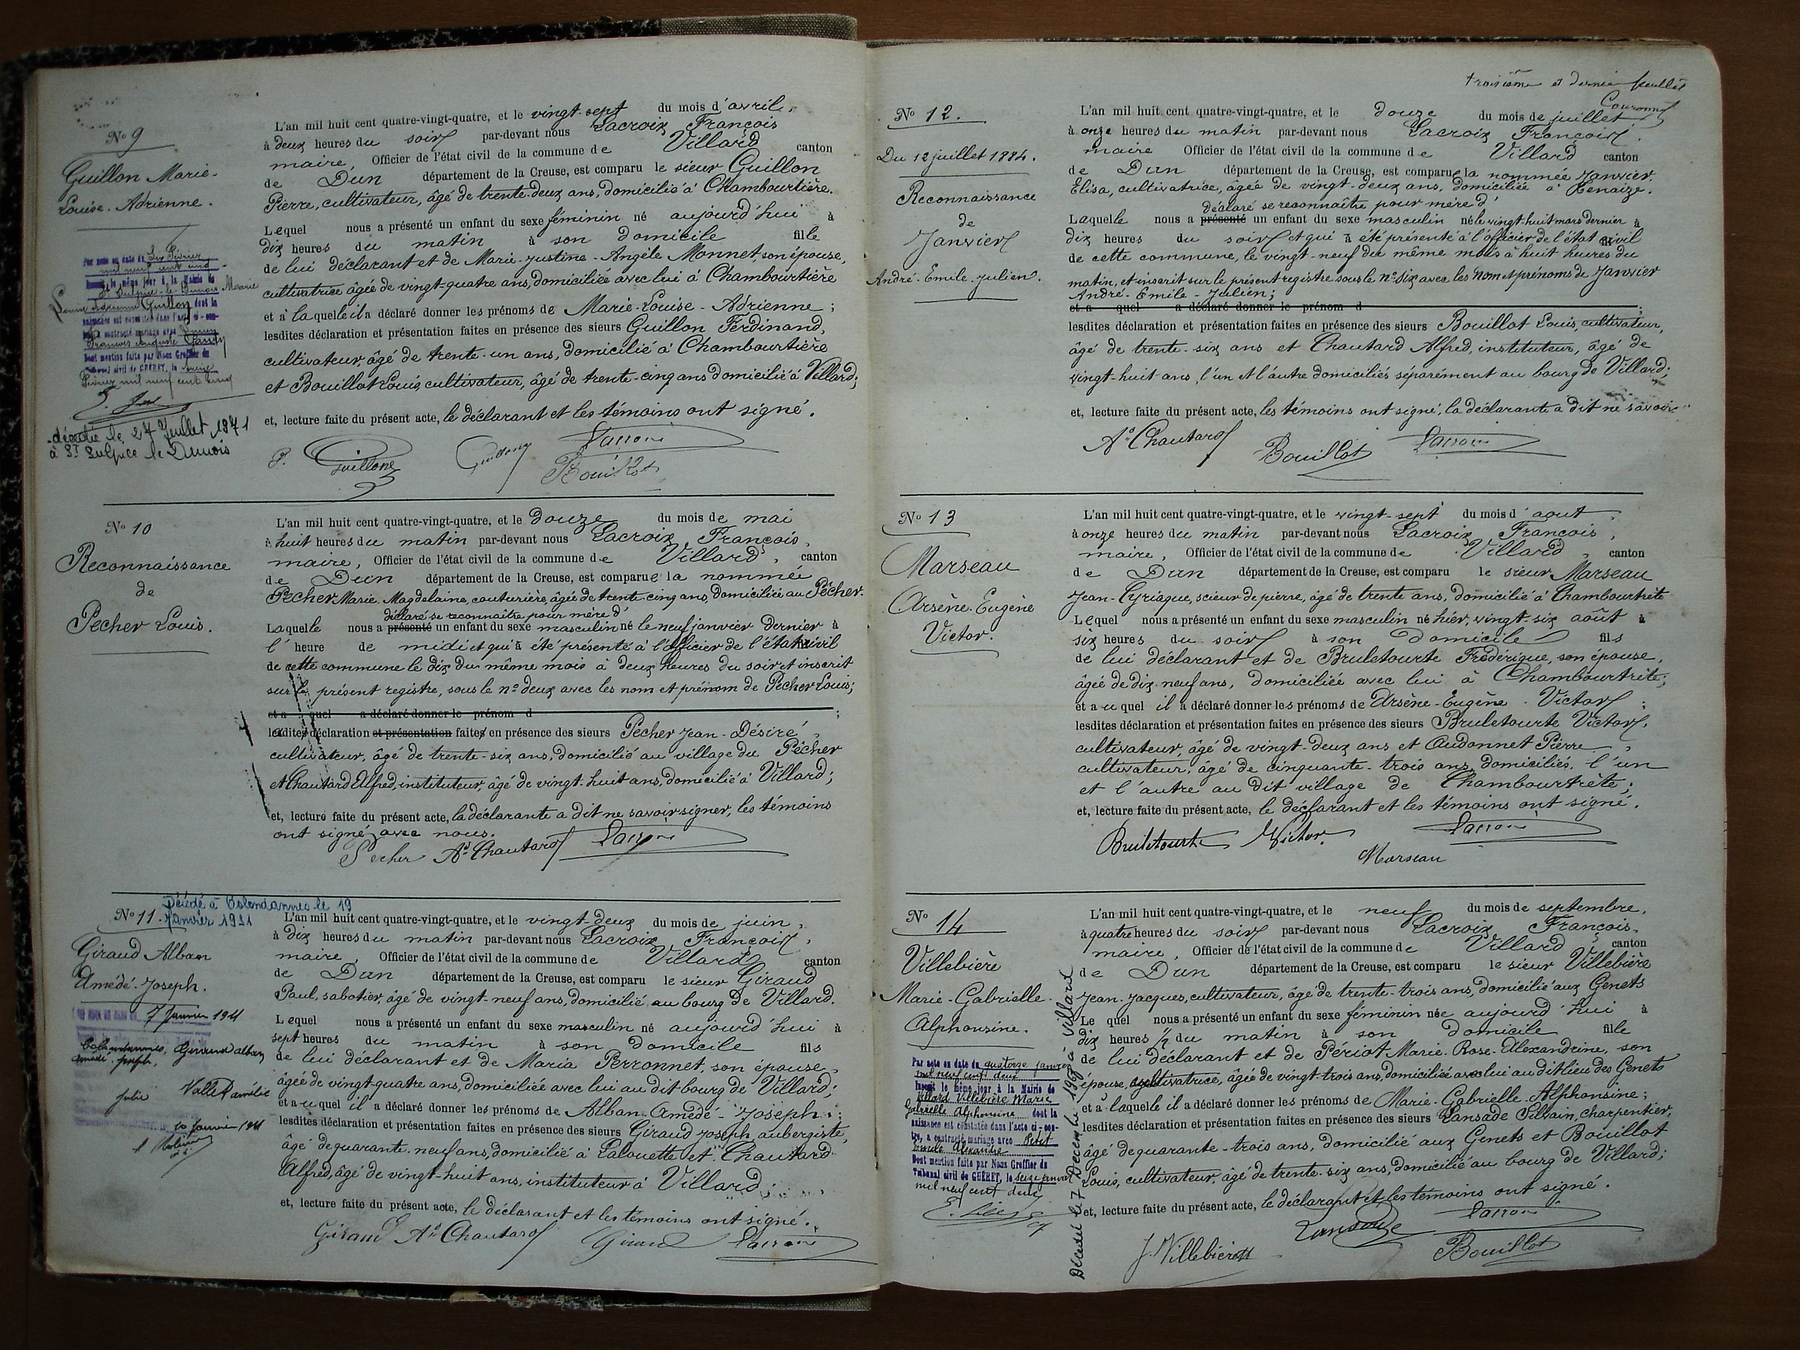 No 9
Guillon Marie-
Louise-Adrienne.
Par acte en date du six Février
mil neuf cent cinq
Guillon
dont la
naissance est constatée dans l'acte ci-con-
tre, a contracté mariage avec
François Auguste
Dont mention faite par Nous Greffier du
Tribunal civil de GUÉRET, le
Février mil neuf cent cinq
décédée le 27 Juillet 1971
à St Sulpice le Dunois
L'an mil huit cent quatre-vingt-quatre, et le vingt-sept du mois d'avril,
à deux heures du soir par-devant nous Lacroix François
maire, Officier de l'état civil de la commune de Villard canton
de Dun département de la Creuse, est comparu le sieur Guillon
Pierre, cultivateur, âgé de trente-deux ans, domicilié à Chambourtière.
Lequel nous a présenté un enfant du sexe féminin né aujourd'hui à
dix heures du matin à son domicile fille
de lui déclarant et de Marie-Justine-Angèle Monnet, son épouse,
cultivatrice âgée de vingt-quatre ans, domiciliée avec lui à Chambourtière
et à laquelle il a déclaré donner les prénoms de Marie-Louise-Adrienne;
lesdites déclaration et présentation faites en présence des sieurs Guillon Ferdinand,
cultivateur, âgé de trente-un ans, domicilié à Chambourtière
et Bouillot Louis, cultivateur, âgé de trente-cinq ans domicilié à Villard;
et, lecture faite du présent acte, le déclarant et les témoins ont signé.
P. Guillon Guillon Lacroix
Bouillot
No 10
Reconnaissance
de
Pécher Louis.
L'an mil huit cent quatre-vingt-quatre, et le douze du mois de mai
à huit heures du matin par-devant nous Lacroix François,
maire, Officier de l'état civil de la commune de Villard, canton
de Dun département de la Creuse, est comparue la nommée
Pécher Marie-Magdelaine, couturière, âgée de trente-cinq ans, domiciliée au Pécher.
déclaré se reconnaître pour mère d'
Laquelle nous a présenté un enfant du sexe masculin né le neuf janvier dernier à
l'heure de midi et qui à été présenté à l'officier de l'état civil
de cette commune le dix du même mois à deux heures du soir et inscrit
sur le présent registre, sous le no deux avec les nom et prénom de Pécher Louis;
et a quel a déclaré donner le prénom d ;
lesdites déclaration et présentation faites en présence des sieurs Pécher Jean-Désiré,
cultivateur, âgé de trente-six ans, domicilié au village du Pécher
et Chautard Alfred, instituteur, âgé de vingt-huit ans, domicilié à Villard;
et, lecture faite du présent acte, la déclarante a dit ne savoir signer, les témoins
ont signé avec nous.
Pecher Ad Chautard Lacroix
No 11
Décédé à Colondannes le 19
Janvier 1951
Giraud Alban
Amédé-Joseph.
7 Janvier 1911
Colondannes, Giraud Alban
Amédé-Joseph,
Julie Vallet Amélie
10 Janvier 1911
L'an mil huit cent quatre-vingt-quatre, et le vingt-deux du mois de juin,
à dix heures du matin par-devant nous Lacroix François,
maire, Officier de l'état civil de la commune de Villard canton
de Dun département de la Creuse, est comparu le sieur Giraud
Paul, sabotier, âgé de vingt-neuf ans, domicilié au bourg de Villard.
Lequel nous a présenté un enfant du sexe masculin né aujourd'hui à
sept heures du matin à son domicile fils
de lui déclarant et de Maria Perronnet, son épouse,
âgée de vingt-quatre ans, domiciliée avec lui au dit bourg de Villard;
et au quel il a déclaré donner les prénoms de Alban-Amédé-Joseph;
lesdites déclaration et présentation faites en présence des sieurs Giraud Joseph, aubergiste,
âgé de quarante-neuf ans, domicilié à Lalouette et Chautard
Alfred, âgé de vingt-huit ans, instituteur à Villard;
et, lecture faite du présent acte, le déclarant et les témoins ont signé.
Giraud Ad Chautard Giraud Lacroix
troisième et dernier feuillet
Couronnel
No 12.
Du 12 juillet 1884.
Reconnaissance
de
Janvier
André-Emile-Julien.
L'an mil huit cent quatre-vingt-quatre, et le douze du mois de juillet
à onze heures du matin par-devant nous Lacroix François,
maire Officier de l'état civil de la commune de Villard canton
de Dun département de la Creuse, est comparue la nommée Janvier
Elisa, cultivatrice, âgée de vingt-deux ans, domiciliée à Benaize.
déclaré se reconnaître pour mère d'
Laquelle nous a présenté un enfant du sexe masculin né le vingt-huit mars dernier à
dix heures du soir et qui à été présenté à l'officier de l'état civil
de cette commune, le vingt-neuf du même mois à huit heures du
matin, et inscrit sur le présent registre sous le no six avec les nom et prénoms de Janvier
André-Emile-Julien;
et a quel a déclaré donner le prénom d ;
lesdites déclaration et présentation faites en présence des sieurs Bouillot Louis, cultivateur,
âgé de trente-six ans et Chautard Alfred, instituteur, âgé de
vingt-huit ans, l'un et l'autre domiciliés séparément au bourg de Villard;
et, lecture faite du présent acte, les témoins ont signé, la déclarante a dit ne savoir
Ad Chautard Bouillot Lacroix
No 13
Marseau
Arsène-Eugène
Victor.
L'an mil huit cent quatre-vingt-quatre, et le vingt-sept du mois d'août
à onze heures du matin par-devant nous Lacroix François,
maire, Officier de l'état civil de la commune de Villard, canton
de Dun département de la Creuse, est comparu le sieur Marseau
Jean-Cyriaque, scieur de pierre, âgé de trente ans, domicilié à Chambourtrète
Lequel nous a présenté un enfant du sexe masculin né hier, vingt-six août à
six heures du soir à son domicile fils
de lui déclarant et de Bruletourte Frédérique, son épouse,
âgée de dix-neuf ans, domiciliée avec lui à Chambourtrète;
et au quel il a déclaré donner les prénoms de Arsène-Eugène-Victor;
lesdites déclaration et présentation faites en présence des sieurs Bruletourte Victor,
cultivateur, âgé de vingt-deux ans et Audonnet Pierre,
cultivateur, âgé de cinquante-trois ans, domiciliés, l'un
et l'autre au dit village de Chambourtrète;
et, lecture faite du présent acte, le déclarant et les témoins ont signé.
Bruletourte Victor. Lacroix
Marseau
No 14
Villebière
Marie-Gabrielle-
Alphonsine.
Par acte en date du quatorze janvier
mil neuf cent deux
Inscrit le même jour à la Mairie de
Villard Villebière Marie
Gabrielle Alphonsine dont la
naissance est constatée dans l'acte ci-con-
tre, a contracté mariage avec Petit
Emile Alexandre
Dont mention faite par Nous Greffier du
Tribunal civil de GUÉRET, le seize janvier
mil neuf cent deux
L'an mil huit cent quatre-vingt-quatre, et le neuf du mois de septembre,
à quatre heures du soir par-devant nous Lacroix François,
maire, Officier de l'état civil de la commune de Villard canton
de Dun département de la Creuse, est comparu le sieur Villebière
Jean-Jacques, cultivateur, âgé de trente-trois ans, domicilié aux Genets
Le quel nous a présenté un enfant du sexe féminin née aujourd'hui à
dix heures 1/2 du matin à son domicile fille
de lui déclarant et de Périot Marie-Rose-Alexandrine, son
épouse, cultivatrice, âgée de vingt-trois ans, domiciliée avec lui au dit lieu des Genets
et à laquelle il a déclaré donner les prénoms de Marie-Gabrielle-Alphonsine;
lesdites déclaration et présentation faites en présence des sieurs Lansade Silvain, charpentier,
âgé de quarante-trois ans, domicilié aux Genets et Bouillot
Louis, cultivateur, âgé de trente-six ans, domicilié au bourg de Villard;
et, lecture faite du présent acte, le déclarant et les témoins ont signé.
Lansade Lacroix
J. Villebière Bouillot